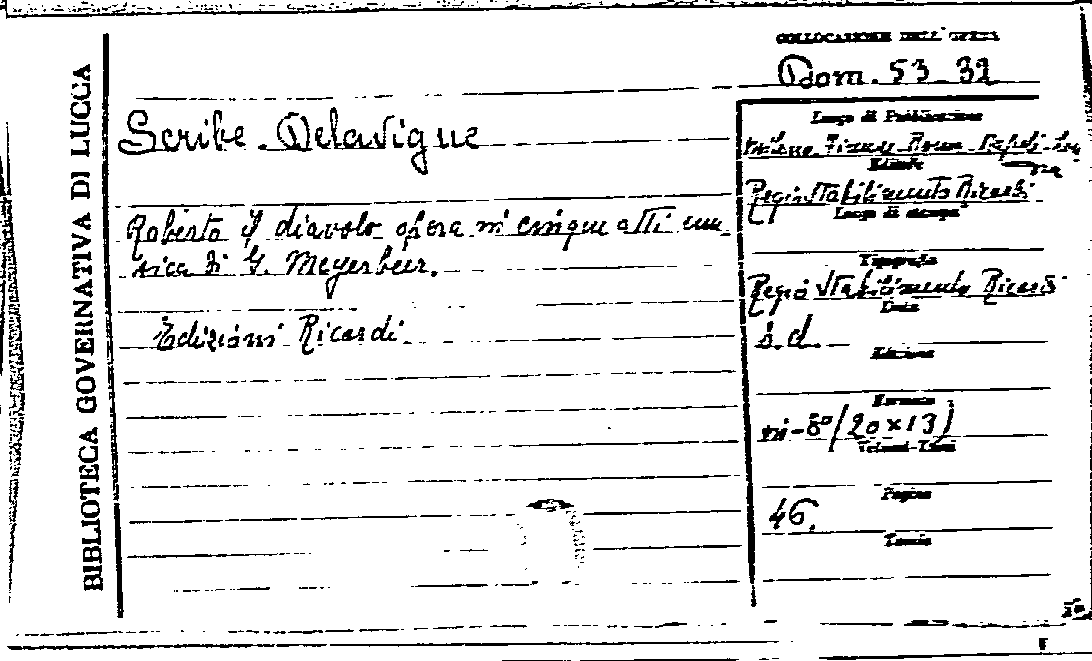 BIBLIOTECA GOVERNATIVA DI LUCCA
COLLOCAZIONE DELL'OPERA
Dom. 53 32
Scribe - Delavigne
Roberto il diavolo opera in cinque atti mu_
sica di G. Meyerbeer.
Edizioni Ricordi.
Luogo di Pubblicazione
Milano - Firenze - Roma - Napoli - Lon
dra
Editore
Regio Stabilimento Ricordi
Luogo di stampa
Tipografia
Regio Stabilimento Ricordi
Data
s.d.
Edizione
Formato
in-8° (20x13)
Volumi-Tomi
Pagine
46.
Tavole